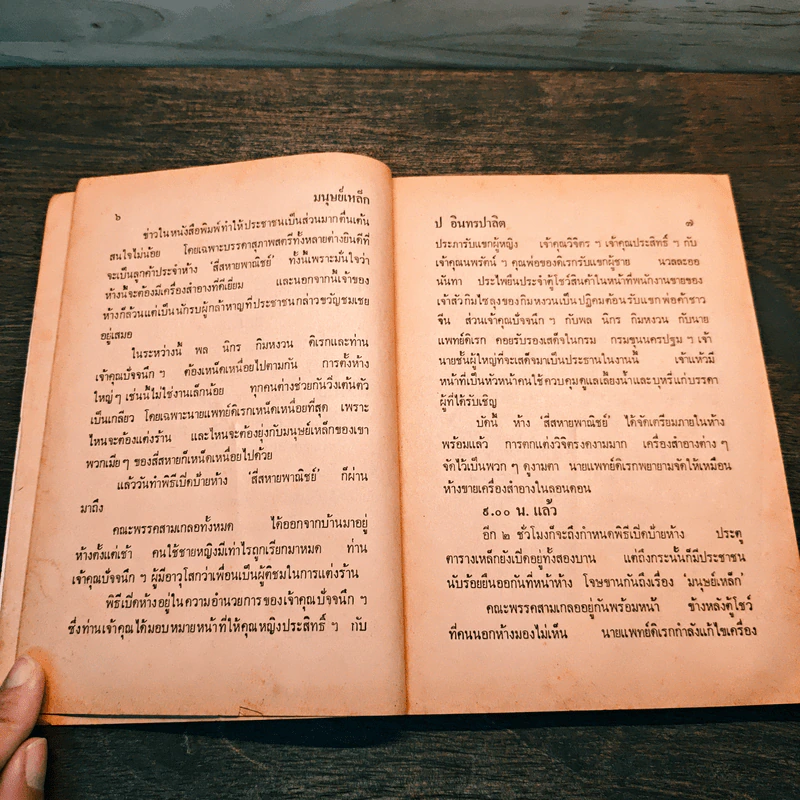 ๖ มนุษย์เหล็ก
ข่าวในหนังสือพิมพ์ทำให้ประชาชนเป็นส่วนมากตื่นเต้น
สนใจไม่น้อย โดยเฉพาะบรรดาสุภาพสตรีทั้งหลายต่างยินดีที่
จะเป็นลูกค้าประจำห้าง ‘สี่สหายพาณิชย์’ ทั้งนี้เพราะมั่นใจว่า
ห้างนี้จะต้องมีเครื่องสำอางที่ดีเยี่ยม และนอกจากนี้เจ้าของ
ห้างก็ล้วนแต่เป็นนักรบผู้กล้าหาญที่ประชาชนกล่าวขวัญชมเชย
อยู่เสมอ
ในระหว่างนี้ พล นิกร กิมหงวน ดิเรกและท่าน
เจ้าคุณปัจจนึก ฯ ต้องเหน็ดเหนื่อยไปตามกัน การตั้งห้าง
ใหญ่ ๆ เช่นนี้ไม่ใช่งานเล็กน้อย ทุกคนต่างช่วยกันวิ่งเต้นตัว
เป็นเกลียว โดยเฉพาะนายแพทย์ดิเรกเหน็ดเหนื่อยที่สุด เพราะ
ไหนจะต้องแต่งร้าน และไหนจะต้องยุ่งกับมนุษย์เหล็กของเขา
พวกเมีย ๆ ของสี่สหายก็เหน็ดเหนื่อยไปด้วย
แล้ววันทำพิธีเปิดป้ายห้าง ‘สี่สหายพาณิชย์’ ก็ผ่าน
มาถึง
คณะพรรคสามเกลอทั้งหมด ได้ออกจากบ้านมาอยู่
ห้างตั้งแต่เช้า คนใช้ชายหญิงมีเท่าไรถูกเรียกมาหมด ท่าน
เจ้าคุณปัจจนึก ฯ ผู้มีอาวุโสกว่าเพื่อนเป็นผู้ติชมในการแต่งร้าน
พิธีเปิดห้างอยู่ในความอำนวยการของเจ้าคุณปัจจนึก ฯ
ซึ่งท่านเจ้าคุณได้มอบหมายหน้าที่ให้คุณหญิงประสิทธิ์ ฯ กับ
ป อินทรปาลิต ๗
ประภารับแขกผู้หญิง เจ้าคุณวิจิตร ฯ เจ้าคุณประสิทธิ์ ฯ กับ
เจ้าคุณนพรัตน์ ฯ คุณพ่อของดิเรกรับแขกผู้ชาย นวลละออ
นันทา ประไพยืนประจำตู้โชว์สินค้าในหน้าที่พนักงานขายของ
เจ้าสัวกิมไซลุงของกิมหงวนเป็นปฏิคมต้อนรับแขกพ่อค้าชาว
จีน ส่วนเจ้าคุณปัจจนึก ฯ กับพล นิกร กิมหงวน กับนาย
แพทย์ดิเรก คอยรับรองเสด็จในกรม กรมขุนนครปฐม ฯ เจ้า
นายชั้นผู้ใหญ่ที่จะเสด็จมาเป็นประธานในงานนี้ เจ้าแห้วมี
หน้าที่เป็นหัวหน้าคนใช้ควบคุมดูแลเลี้ยงน้ำและบุหรี่แก่บรรดา
ผู้ที่ได้รับเชิญ
บัดนี้ ห้าง ‘สี่สหายพาณิชย์’ ได้จัดเตรียมภายในห้าง
พร้อมแล้ว การตกแต่งวิจิตรงดงามมาก เครื่องสำอางต่าง ๆ
จัดไว้เป็นพวก ๆ ดูงามตา นายแพทย์ดิเรกพยายามจัดให้เหมือน
ห้างขายเครื่องสำอางในลอนดอน
๕.๐๐ น. แล้ว
อีก ๒ ชั่วโมงก็จะถึงกำหนดพิธีเปิดป้ายห้าง ประตู
ตารางเหล็กยังเปิดอยู่ทั้งสองบาน แต่ถึงกระนั้นก็มีประชาชน
นับร้อยยืนออกันที่หน้าห้าง โจษขานกันถึงเรื่อง ‘มนุษย์เหล็ก’
คณะพรรคสามเกลออยู่กันพร้อมหน้า ข้างหลังตู้โชว์
ที่คนนอกห้างมองไม่เห็น นายแพทย์ดิเรกกำลังแก้ไขเครื่อง